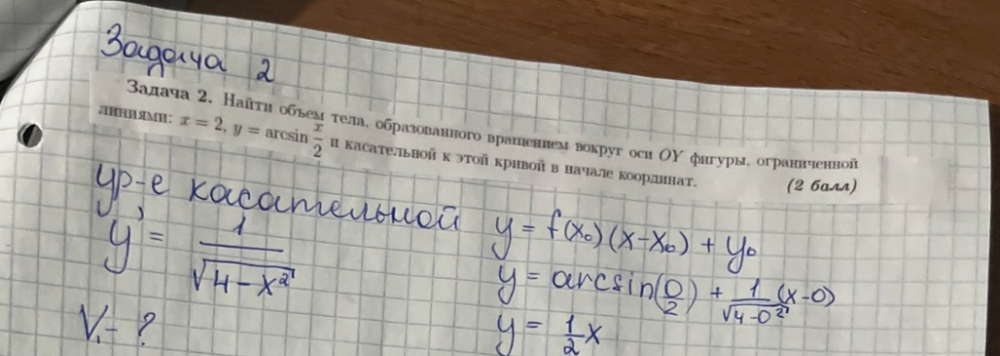 Задача 2
Задача 2. Найти объем тела, образованного вращением вокруг оси OY фигуры, ограниченной
линиями: x = 2, y = arcsin x/2 и касательной к этой кривой в начале координат. (2 балл)
ур-е касательной y = f(x₀)(x-x₀) + y₀
y' = 1/√(4-x²)
y = arcsin(0/2) + 1/√(4-0²) (x-0)
V - ?
y = 1/2 x